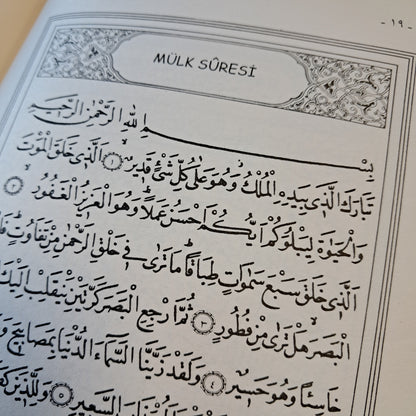 - ١٩ -
MÜLK SÛRESİ
بِسْمِ اللّٰهِ الرَّحْمٰنِ الرَّحِيمِ
تَبَارَكَ الَّذٖى بِيَدِهِ الْمُلْكُ وَهُوَ عَلٰى كُلِّ شَىْءٍ قَدٖيرٌ ﴿١﴾ اَلَّذٖى خَلَقَ الْمَوْتَ
وَالْحَيٰوةَ لِيَبْلُوَكُمْ اَيُّكُمْ اَحْسَنُ عَمَلًا وَهُوَ الْعَزٖيزُ الْغَفُورُ ﴿٢﴾
اَلَّذٖى خَلَقَ سَبْعَ سَمٰوَاتٍ طِبَاقًا مَا تَرٰى فٖى خَلْقِ الرَّحْمٰنِ مِنْ تَفَاوُتٍ
الْبَصَرَ هَلْ تَرٰى مِنْ فُطُورٍ ﴿٣﴾ ثُمَّ ارْجِعِ الْبَصَرَ كَرَّتَيْنِ يَنْقَلِبْ اِلَيْكَ
خَاسِئًا وَهُوَ حَسٖيرٌ ﴿٤﴾ وَلَقَدْ زَيَّنَّا السَّمَاءَ الدُّنْيَا بِمَصَابٖيحَ
السَّعٖيرِ ﴿٥﴾ وَلِلَّذٖينَ